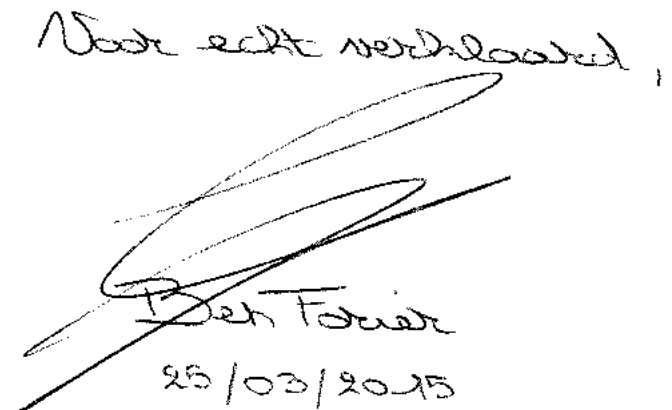 Voor echt verklaard,
Ben Forier
25/03/2015